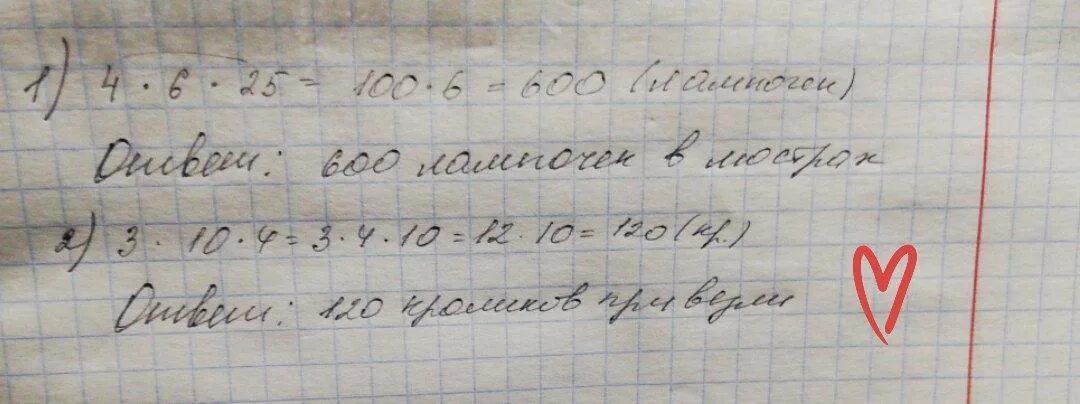 1) 4 · 6 · 25 = 100 · 6 = 600 (лампочек)
Ответ: 600 лампочек в люстрах
2) 3 · 10 · 4 = 3 · 4 · 10 = 12 · 10 = 120 (кр.)
Ответ: 120 кроликов привезли